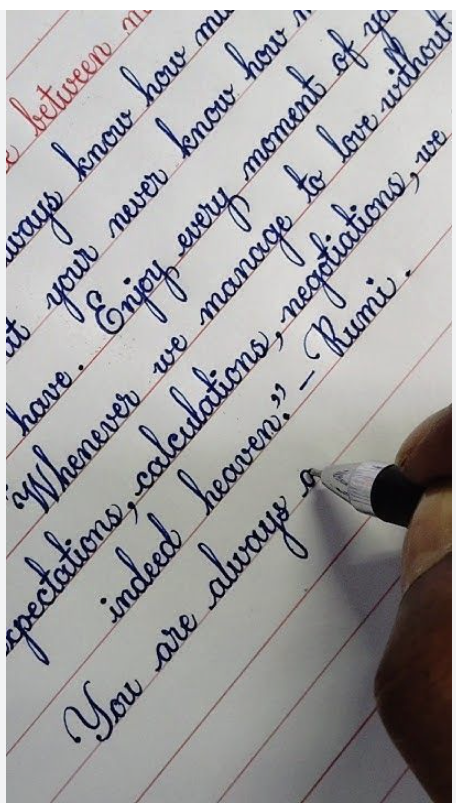 between
always know how
your never know how
have. Enjoy every moment of
"Whenever we manage to love without
expectations, calculations, negotiations, we
indeed heaven." – Rumi.
You are always a